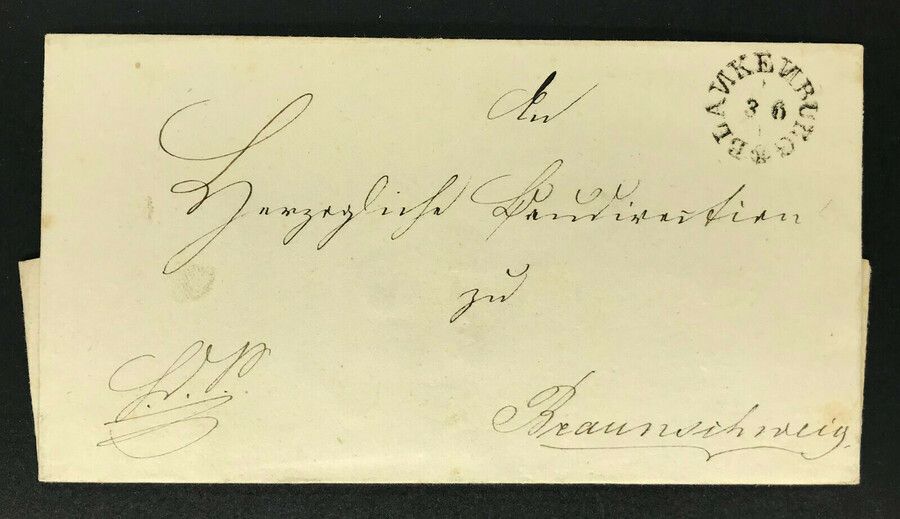 An
BLANKENBURG
3 6
Herzogliche Baudirection
zu
H. D. S.
Braunschweig